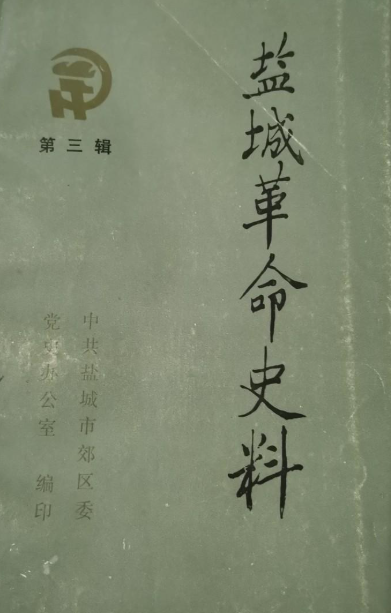 盐城革命史料
第三辑
中共盐城市郊区委
党史办公室 编印